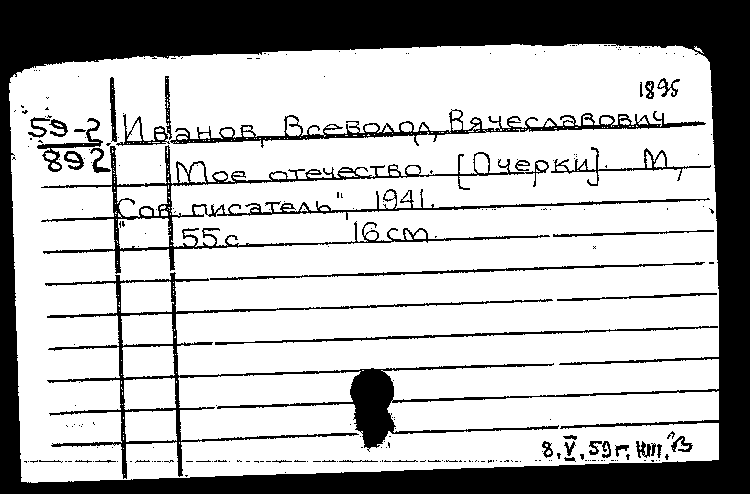 1895
59-2 Иванов, Всеволод Вячеславович
892 Мое отечество. [Очерки]. М.,
"Сов. писатель", 1941.
55 с. 16 см.
8.V.59 г.